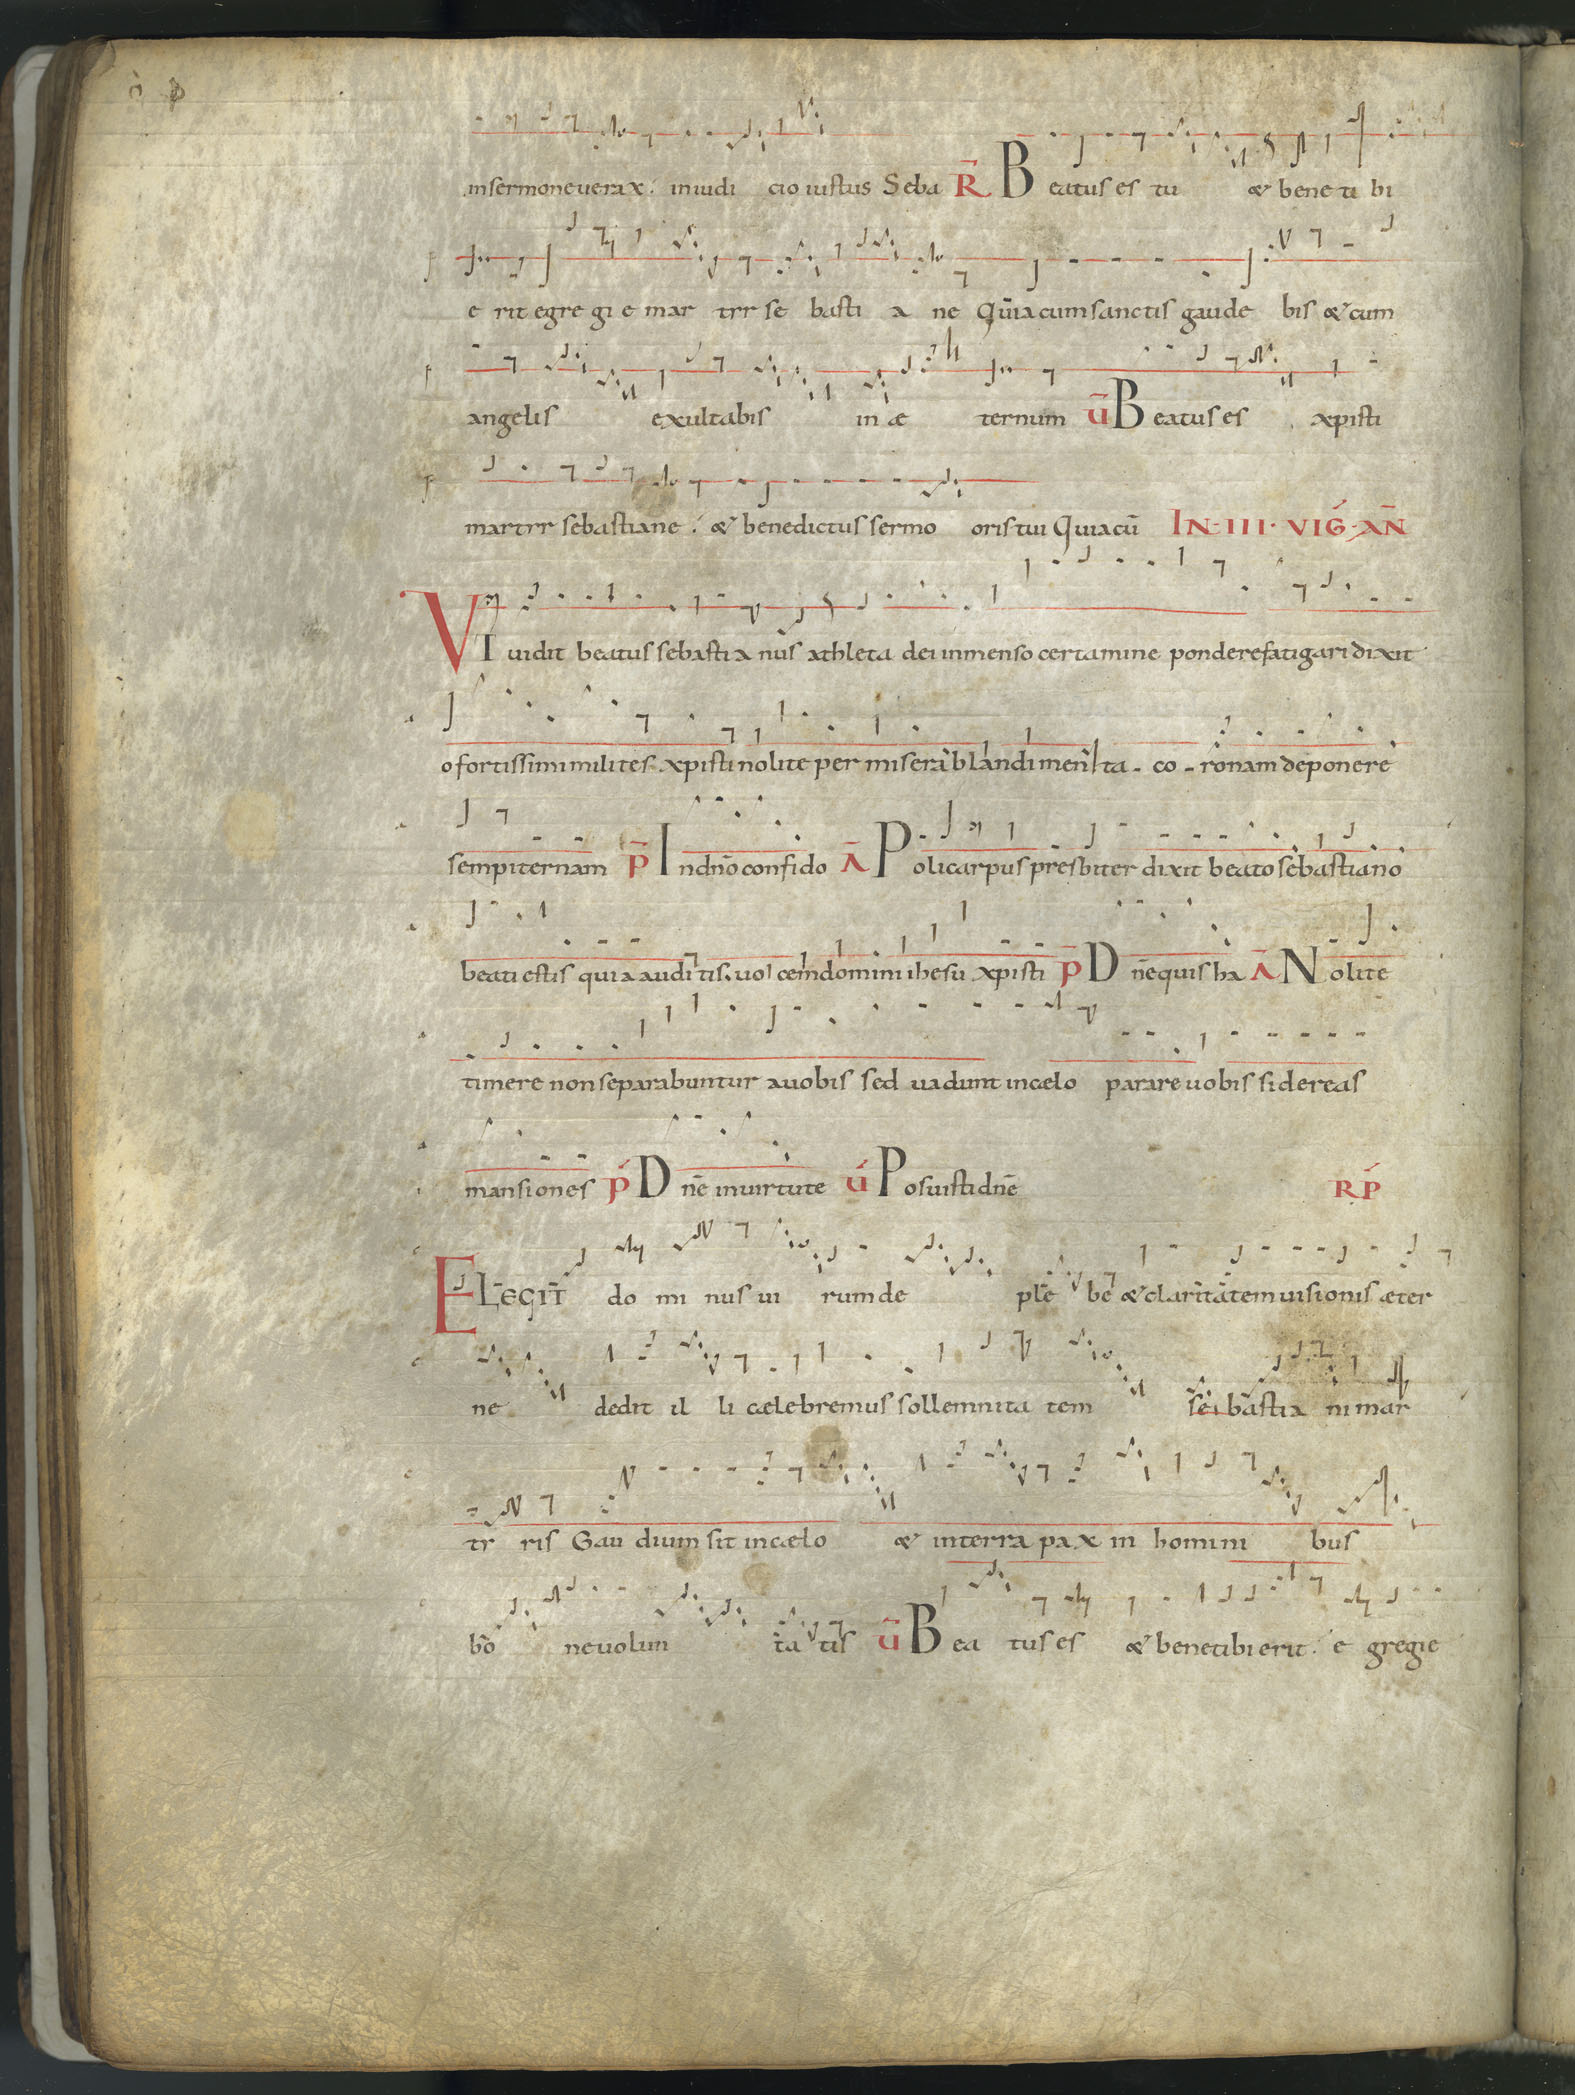 insermoneuerax. iniudi cio iustus Seba R̄ B eatus es tu & bene ti bi
e rit egre gi e mar tyr se basti a ne Quia cum sanctis gaude bis & cum
angelis exultabis in æ ternum ū B eatus es xpisti
martyr sebastiane. & benedictus sermo oris tui Quiacū IN·III·VIḠ·AN̄
VI uidit beatus sebasti a nus athleta dei inmenso certamine ponderefatigari dixit
o fortissimi milites xpisti nolite per misera blandimenta co ronam deponere
sempiternam p̄ I ndn̄o confido Ā P olicarpus presbiter dixit beato sebastiano
beati estis qui a audi tis uo cem domini ihesu xpisti p̄ D n̄e quis ha Ā N olite
timere non separabuntur auobis sed uadunt incælo parare uobis sidereas
mansiones p̄ D n̄e inuirtute ū P osuisti dn̄e RP̄
ELEGIT do mi nus ui rum de ple be & claritatem uisionis æter
ne dedit il li cælebremus sollemnita tem se basti a ni mar
ty ris Gau dium sit incælo & interra pax in homini bus
bo ne uolun ta tis ū B ea tus es & bene tibi erit. e gregie